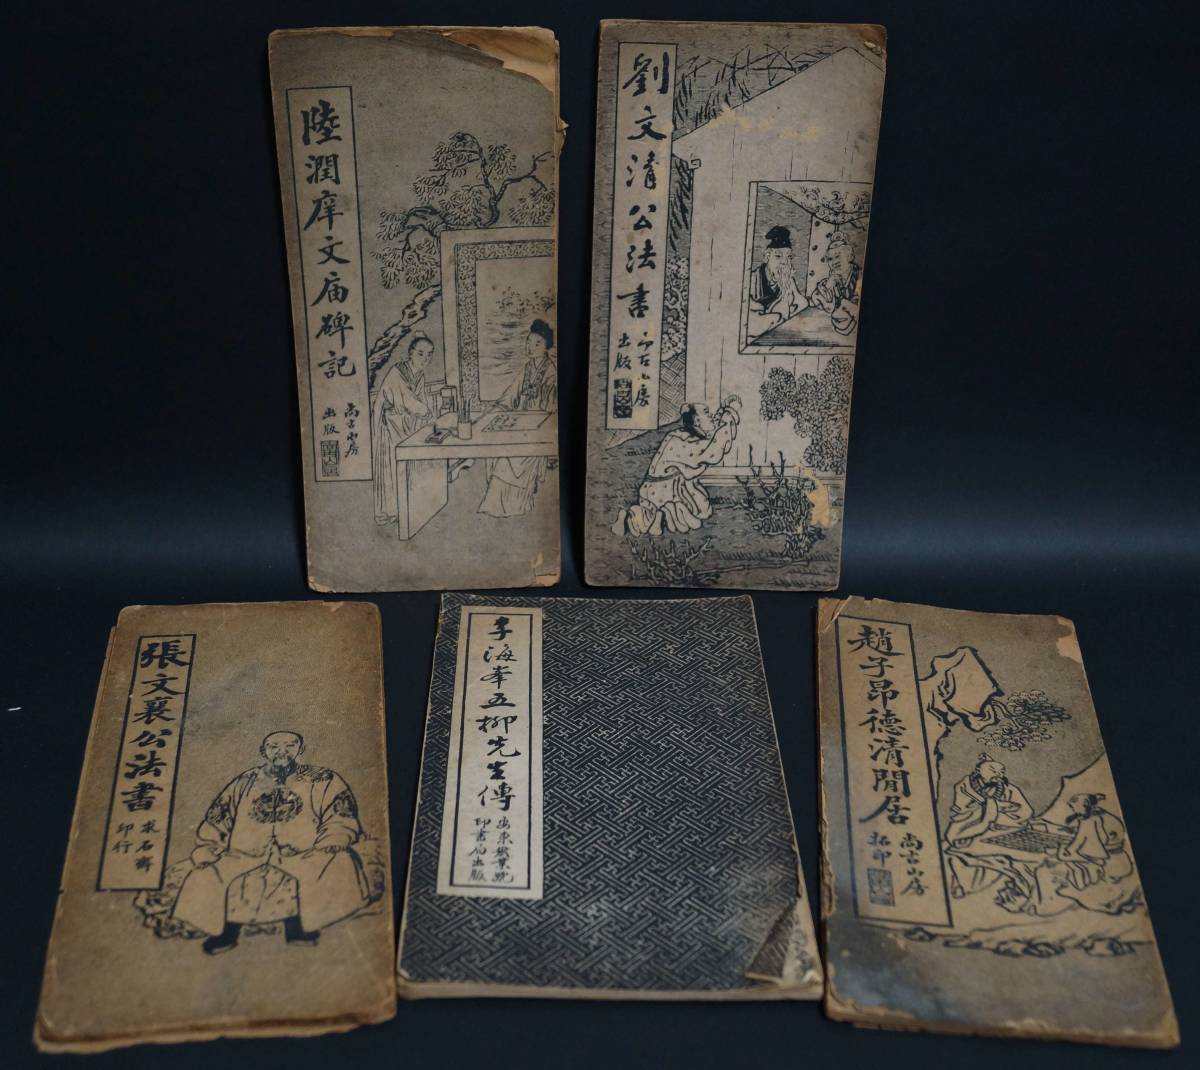 陸潤庠文庙碑記
尚古山房
出版
劉文清公法書
尚古山房
出版
張文襄公法書
求石齋
印行
李海峯五柳先生傳
安東誠業號
印書局出版
趙子昂德清閒居
尚古山房
拓印